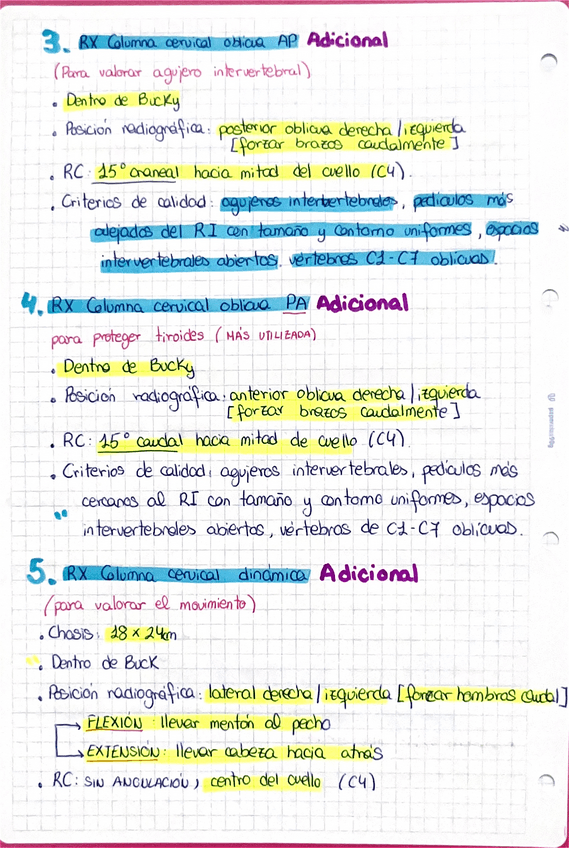 3. RX Columna cervical oblicua AP Adicional
(Para valorar agujero intervertebral)
• Dentro de Bucky
• Posición radiográfica: posterior oblicua derecha / izquierda
[forzar brazos caudalmente]
• RC: 15° craneal hacia mitad del cuello (C4).
• Criterios de calidad: agujeros intervertebrales, pedículos más
alejados del RI con tamaño y contorno uniformes, espacios
intervertebrales abiertos, vértebras C1-C7 oblicuas.
4. RX Columna cervical oblicua PA Adicional
para proteger tiroides (MÁS UTILIZADA)
• Dentro de Bucky
• Posición radiográfica: anterior oblicua derecha / izquierda
[forzar brazos caudalmente]
• RC: 15° caudal hacia mitad de cuello (C4).
• Criterios de calidad: agujeros intervertebrales, pedículos más
cercanos al RI con tamaño y contorno uniformes, espacios
intervertebrales abiertos, vértebras de C1-C7 oblicuas.
5. RX Columna cervical dinámica Adicional
(para valorar el movimiento)
• Chasis: 18 x 24cm
• Dentro de Buck
• Posición radiográfica: lateral derecha / izquierda [forzar hombros caudal]
FLEXIÓN: llevar mentón al pecho
EXTENSIÓN: llevar cabeza hacia atrás
• RC: SIN ANGULACIÓN, centro del cuello (C4)